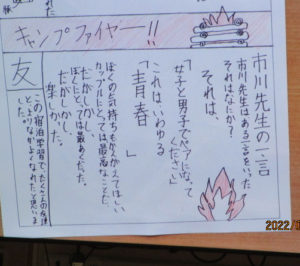 キャンプファイヤー!!
市川先生の一言
市川先生はある一言をいった
それはなにか?
それは、
「女子と男子でペアになって
ください」
これはいわゆる
「青春」
ぼくの気持ちもかんがえてほしい
カップルにとっては最高なことだ
だがしかし、
ぼくにとっては最あくだった。
だがしかし、
楽しかった。
友
この宿泊学習でたくさんの友達
となかよくなれたと思いま
した。